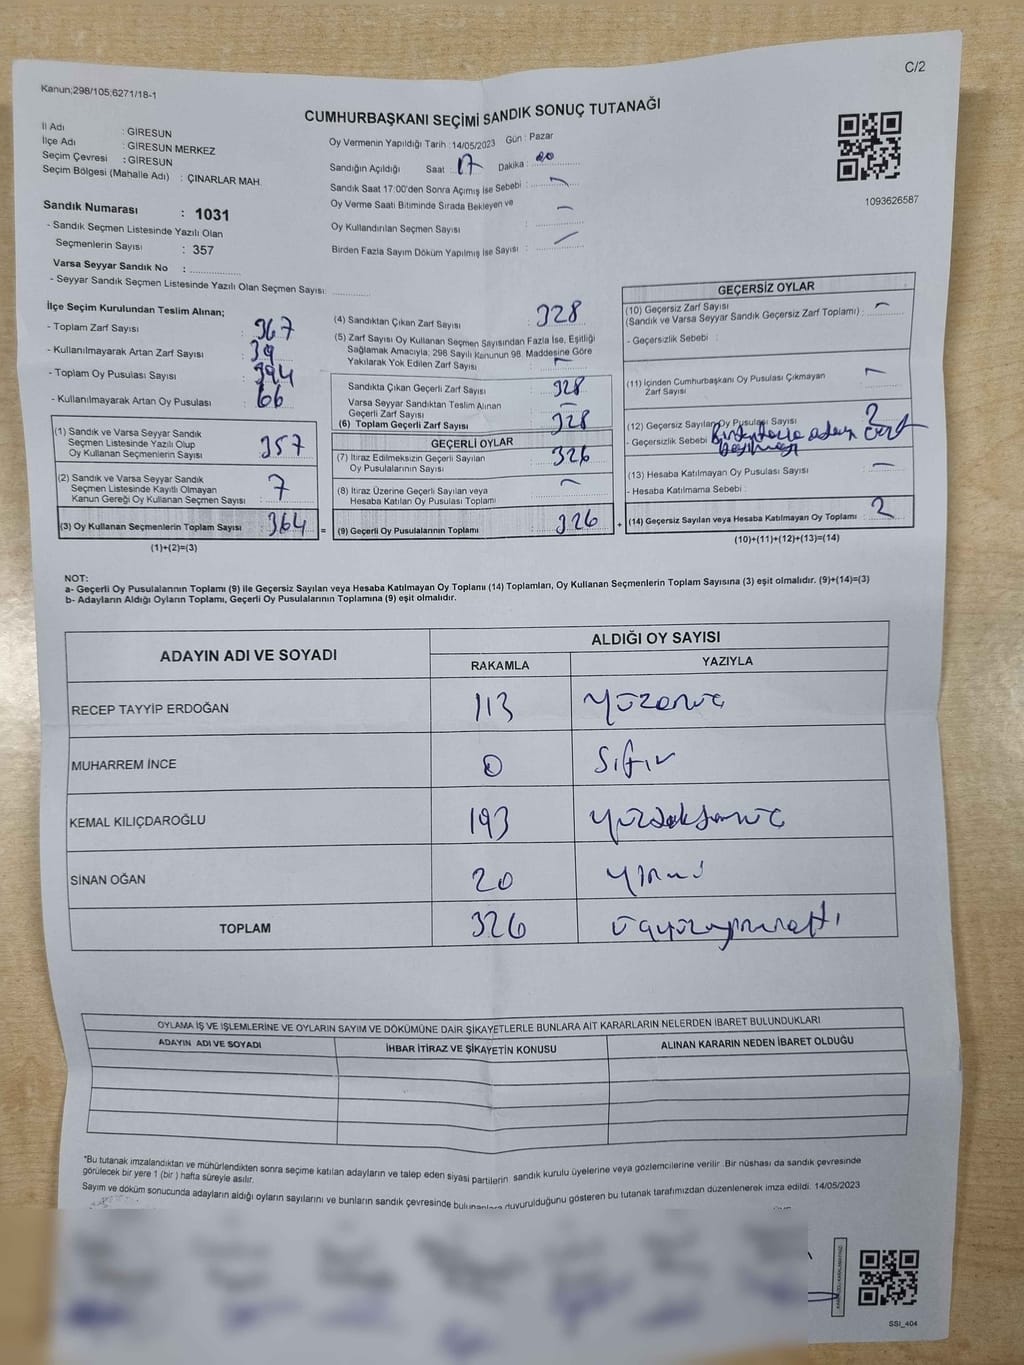 C/2
Kanun;298/105;6271/18-1
CUMHURBAŞKANI SEÇİMİ SANDIK SONUÇ TUTANAĞI
İl Adı : GİRESUN
İlçe Adı : GİRESUN MERKEZ
Seçim Çevresi : GİRESUN
Seçim Bölgesi (Mahalle Adı) : ÇINARLAR MAH.
Oy Vermenin Yapıldığı Tarih : 14/05/2023 Gün : Pazar
Sandığın Açıldığı Saat : 17 Dakika : 00
Sandık Saat 17:00'den Sonra Açımış İse Sebebi : -
Oy Verme Saati Bitiminde Sırada Bekleyen ve
Oy Kullandırılan Seçmen Sayısı -
Birden Fazla Sayım Döküm Yapılmış İse Sayısı : -
1093626587
Sandık Numarası : 1031
- Sandık Seçmen Listesinde Yazılı Olan
Seçmenlerin Sayısı : 357
Varsa Seyyar Sandık No :
- Seyyar Sandık Seçmen Listesinde Yazılı Olan Seçmen Sayısı:
İlçe Seçim Kurulundan Teslim Alınan;
- Toplam Zarf Sayısı : 367
- Kullanılmayarak Artan Zarf Sayısı : 39
- Toplam Oy Pusulası Sayısı : 394
- Kullanılmayarak Artan Oy Pusulası : 66
(1) Sandık ve Varsa Seyyar Sandık
Seçmen Listesinde Yazılı Olup
Oy Kullanan Seçmenlerin Sayısı : 357
(2) Sandık ve Varsa Seyyar Sandık
Seçmen Listesinde Kayıtlı Olmayan
Kanun Gereği Oy Kullanan Seçmen Sayısı : 7
(3) Oy Kullanan Seçmenlerin Toplam Sayısı : 364 =
(1)+(2)=(3)
(4) Sandıktan Çıkan Zarf Sayısı : 328
(5) Zarf Sayısı Oy Kullanan Seçmen Sayısından Fazla İse, Eşitliği
Sağlamak Amacıyla; 298 Sayılı Kanunun 98. Maddesine Göre
Yakılarak Yok Edilen Zarf Sayısı : -
Sandıkta Çıkan Geçerli Zarf Sayısı : 328
Varsa Seyyar Sandıktan Teslim Alınan
Geçerli Zarf Sayısı : -
(6) Toplam Geçerli Zarf Sayısı : 328
GEÇERLİ OYLAR
(7) İtiraz Edilmeksizin Geçerli Sayılan
Oy Pusulalarının Sayısı : 326
(8) İtiraz Üzerine Geçerli Sayılan veya
Hesaba Katılan Oy Pusulası Toplamı : -
(9) Geçerli Oy Pusulalarının Toplamı : 326 +
GEÇERSİZ OYLAR
(10) Geçersiz Zarf Sayısı
(Sandık ve Varsa Seyyar Sandık Geçersiz Zarf Toplamı) : -
- Geçersizlik Sebebi :
(11) İçinden Cumhurbaşkanı Oy Pusulası Çıkmayan
Zarf Sayısı : -
(12) Geçersiz Sayılan Oy Pusulası Sayısı : 2
- Geçersizlik Sebebi : Birden fazla adaya
(13) Hesaba Katılmayan Oy Pusulası Sayısı : -
- Hesaba Katılmama Sebebi :
(14) Geçersiz Sayılan veya Hesaba Katılmayan Oy Toplamı : 2
(10)+(11)+(12)+(13)=(14)
NOT:
a- Geçerli Oy Pusulalarının Toplamı (9) ile Geçersiz Sayılan veya Hesaba Katılmayan Oy Toplamı (14) Toplamları, Oy Kullanan Seçmenlerin Toplam Sayısına (3) eşit olmalıdır. (9)+(14)=(3)
b- Adayların Aldığı Oyların Toplamı, Geçerli Oy Pusulalarının Toplamına (9) eşit olmalıdır.
ADAYIN ADI VE SOYADI ALDIĞI OY SAYISI
RAKAMLA YAZIYLA
RECEP TAYYİP ERDOĞAN 113 Yüzonüç
MUHARREM İNCE 0 Sıfır
KEMAL KILIÇDAROĞLU 193 yüzdoksanüç
SİNAN OĞAN 20 yirmi
TOPLAM 326 üçyüzyirmialtı
OYLAMA İŞ VE İŞLEMLERİNE VE OYLARIN SAYIM VE DÖKÜMÜNE DAİR ŞİKAYETLERLE BUNLARA AİT KARARLARIN NELERDEN İBARET BULUNDUKLARI
ADAYIN ADI VE SOYADI İHBAR İTİRAZ VE ŞİKAYETİN KONUSU ALINAN KARARIN NEDEN İBARET OLDUĞU
*Bu tutanak imzalandıktan ve mühürlendikten sonra seçime katılan adayların ve talep eden siyasi partilerin sandık kurulu üyelerine veya gözlemcilerine verilir. Bir nüshası da sandık çevresinde
görülecek bir yere 1 (bir) hafta süreyle asılır.
Sayım ve döküm sonucunda adayların aldığı oyların sayılarını ve bunların sandık çevresinde bulunanlara duyurulduğunu gösteren bu tutanak tarafımızdan düzenlenerek imza edildi. 14/05/2023
SSI_404